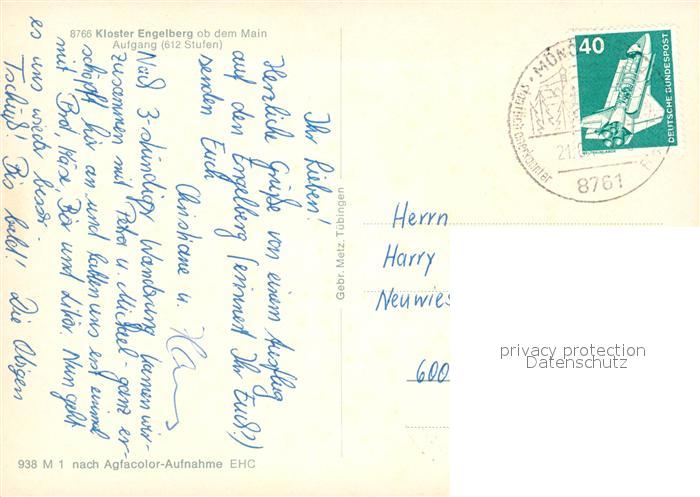 8766 Kloster Engelberg ob dem Main
Aufgang (612 Stufen)
Ihr Lieben!
Herzliche Grüße von einem Ausflug
auf den Engelberg (erinnert Ihr Euch?)
senden Euch
Christiane u.
Nach 3-stündiger Wanderung kamen wir -
zusammen mit Petra u. Michael - ganz er-
schöpft hier an und labten uns erst einmal
mit Brot, Käse, Bier und Likör. Nun geht
es uns wieder besser -
Tschüß! Bis bald! Die Obigen
938 M 1 nach Agfacolor-Aufnahme EHC
Gebr. Metz, Tübingen
40
DEUTSCHE BUNDESPOST
8761
Herrn
Harry
Neuwies
600
privacy protection
Datenschutz